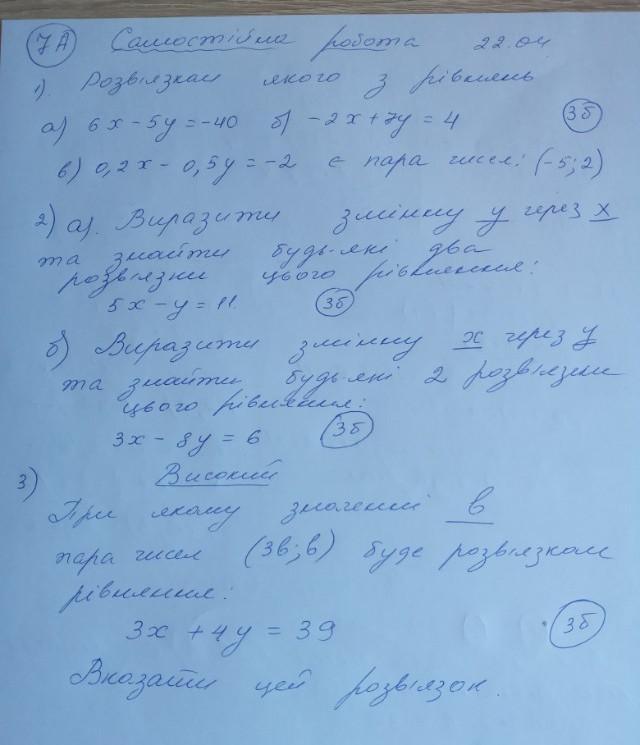 7А Самостійна робота 22.04
1). Розв'язком якого з рівнянь
а) 6x - 5y = -40 б) -2x + 7y = 4 3б
в) 0,2x - 0,5y = -2 є пара чисел: (-5; 2)
2) а). Виразити змінну y через x
та знайти будь-які два
розв'язки цього рівняння:
5x - y = 11. 3б
б) Виразити змінну x через y
та знайти будь-які 2 розв'язки
цього рівняння:
3x - 8y = 6 3б
3) Високий
При якому значенні в
пара чисел (3в; в) буде розв'язком
рівняння:
3x + 4y = 39 3б
Вказати цей розв'язок.